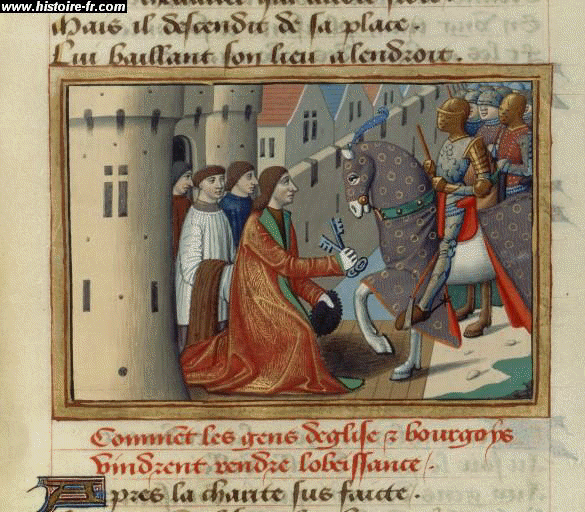 www.histoire-fr.com
Mais il descendit de sa place.
Lui baillant son lieu alendroit.
Commēt les gens deglise & bourgoys
vindrent rendre lobeissance.
Apres la charite sus faicte.